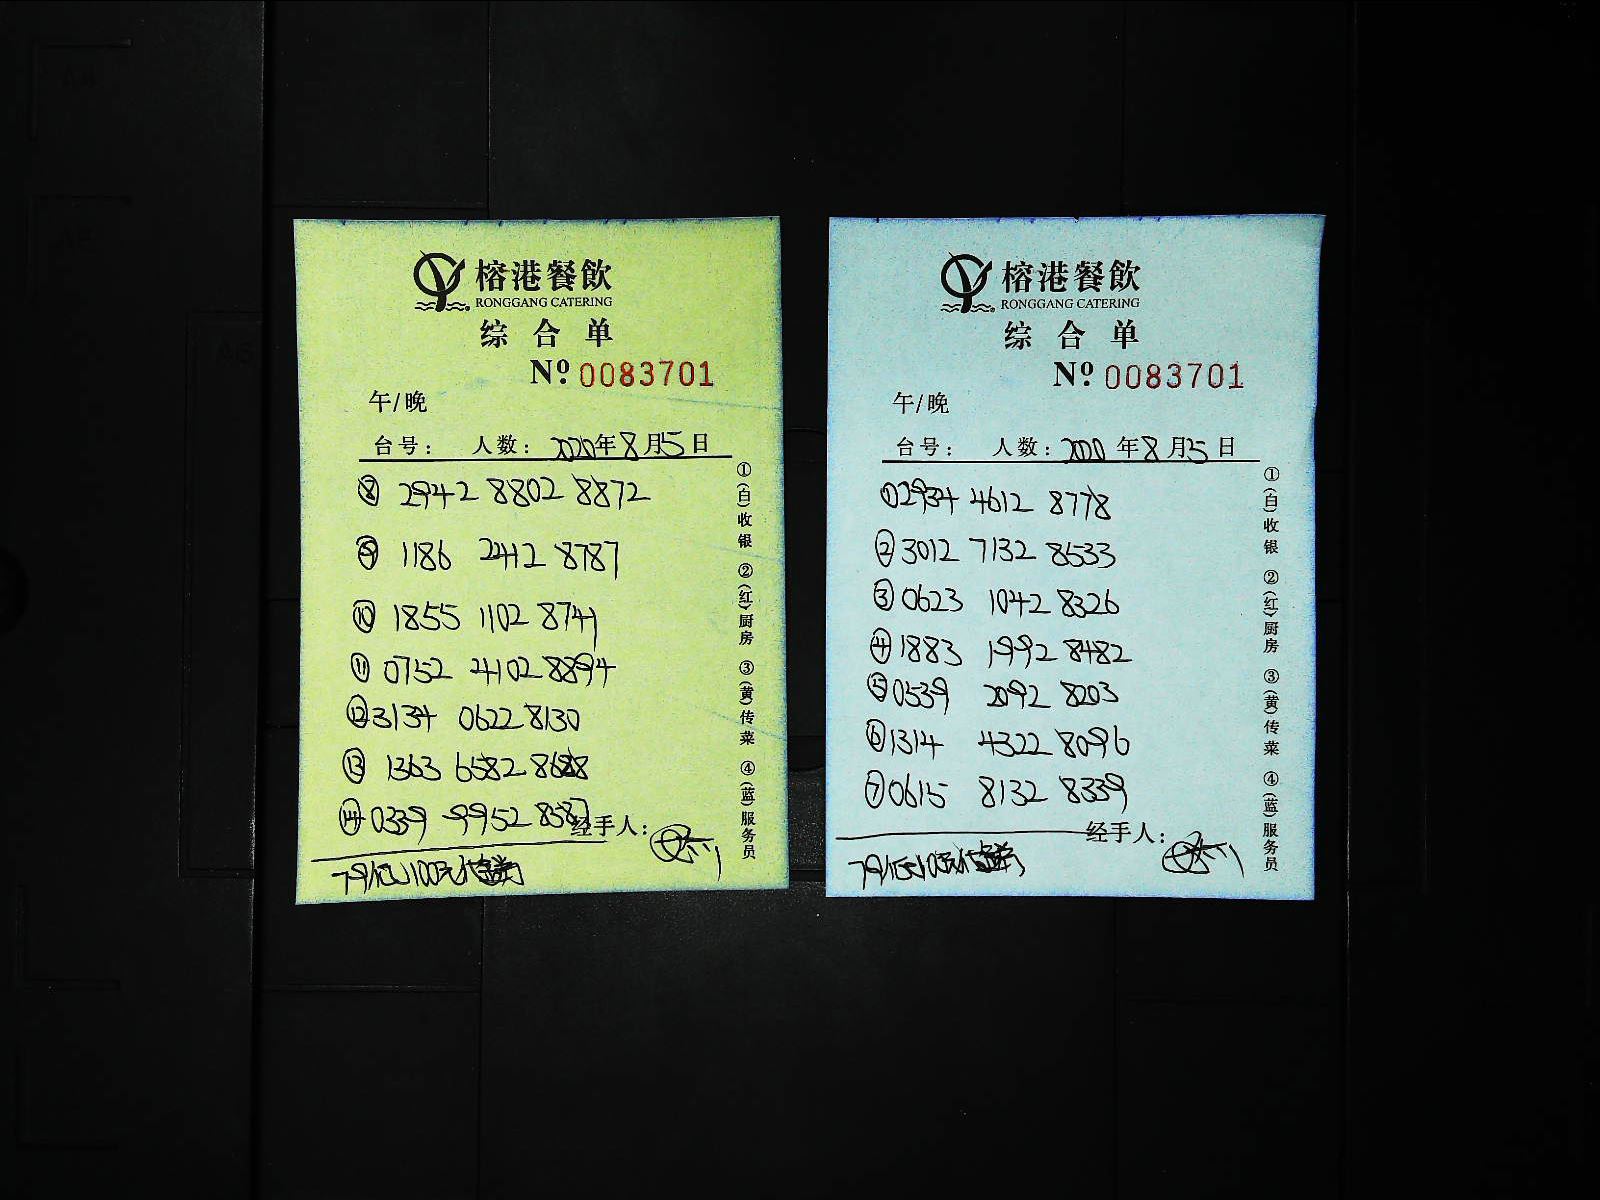 榕港餐飲
RONGGANG CATERING
综合单
Nº 0083701
午/晚
台号： 人数：2020年8月15日
⑧ 2942 8802 8872
⑨ 1186 2412 8787
⑩ 1855 1102 8741
⑪ 0752 4102 8894
⑫ 3134 0622 8130
⑬ 1363 6582 8688
⑭ 0339 9952 8587
经手人：
①(白)收银 ②(红)厨房 ③(黄)传菜 ④(蓝)服务员
榕港餐飲
RONGGANG CATERING
综合单
Nº 0083701
午/晚
台号： 人数：2020年8月15日
① 02934 4612 8778
② 3012 7132 8533
③ 0623 1042 8326
④ 1883 1992 8482
⑤ 0539 2092 8203
⑥ 1314 4322 8096
⑦ 0615 8132 8339
经手人：
①(白)收银 ②(红)厨房 ③(黄)传菜 ④(蓝)服务员